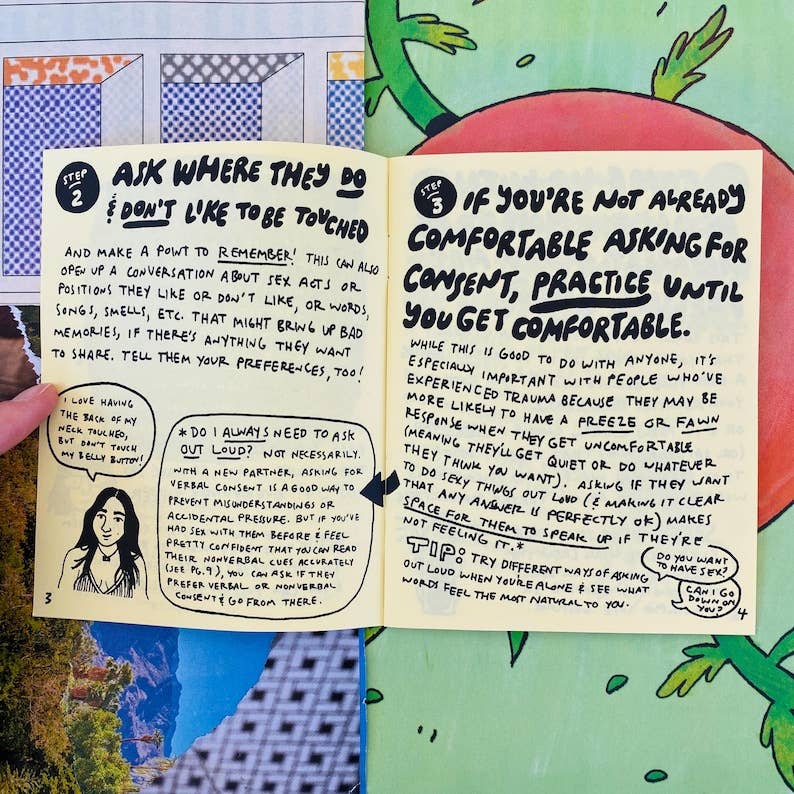 STEP 2
ASK WHERE THEY DO
& DON'T LIKE TO BE TOUCHED
AND MAKE A POINT TO REMEMBER! THIS CAN ALSO
OPEN UP A CONVERSATION ABOUT SEX ACTS OR
POSITIONS THEY LIKE OR DON'T LIKE, OR WORDS,
SONGS, SMELLS, ETC. THAT MIGHT BRING UP BAD
MEMORIES, IF THERE'S ANYTHING THEY WANT
TO SHARE. TELL THEM YOUR PREFERENCES, TOO!
I LOVE HAVING
THE BACK OF MY
NECK TOUCHED,
BUT DON'T TOUCH
MY BELLY BUTTON!
*DO I ALWAYS NEED TO ASK
OUT LOUD? NOT NECESSARILY.
WITH A NEW PARTNER, ASKING FOR
VERBAL CONSENT IS A GOOD WAY TO
PREVENT MISUNDERSTANDINGS OR
ACCIDENTAL PRESSURE. BUT IF YOU'VE
HAD SEX WITH THEM BEFORE & FEEL
PRETTY CONFIDENT THAT YOU CAN READ
THEIR NONVERBAL CUES ACCURATELY
(SEE PG. 9), YOU CAN ASK IF THEY
PREFER VERBAL OR NONVERBAL
CONSENT & GO FROM THERE.
3
STEP 3
IF YOU'RE NOT ALREADY
COMFORTABLE ASKING FOR
CONSENT, PRACTICE UNTIL
YOU GET COMFORTABLE.
WHILE THIS IS GOOD TO DO WITH ANYONE, IT'S
ESPECIALLY IMPORTANT WITH PEOPLE WHO'VE
EXPERIENCED TRAUMA BECAUSE THEY MAY BE
MORE LIKELY TO HAVE A FREEZE OR FAWN
RESPONSE WHEN THEY GET UNCOMFORTABLE
(MEANING THEY'LL GET QUIET OR DO WHATEVER
THEY THINK YOU WANT). ASKING IF THEY WANT
TO DO SEXY THINGS OUT LOUD (& MAKING IT CLEAR
THAT ANY ANSWER IS PERFECTLY OK) MAKES
SPACE FOR THEM TO SPEAK UP IF THEY'RE
NOT FEELING IT.*
TIP: TRY DIFFERENT WAYS OF ASKING
OUT LOUD WHEN YOU'RE ALONE & SEE WHAT
WORDS FEEL THE MOST NATURAL TO YOU.
DO YOU WANT
TO HAVE SEX?
CAN I GO
DOWN ON
YOU?
4